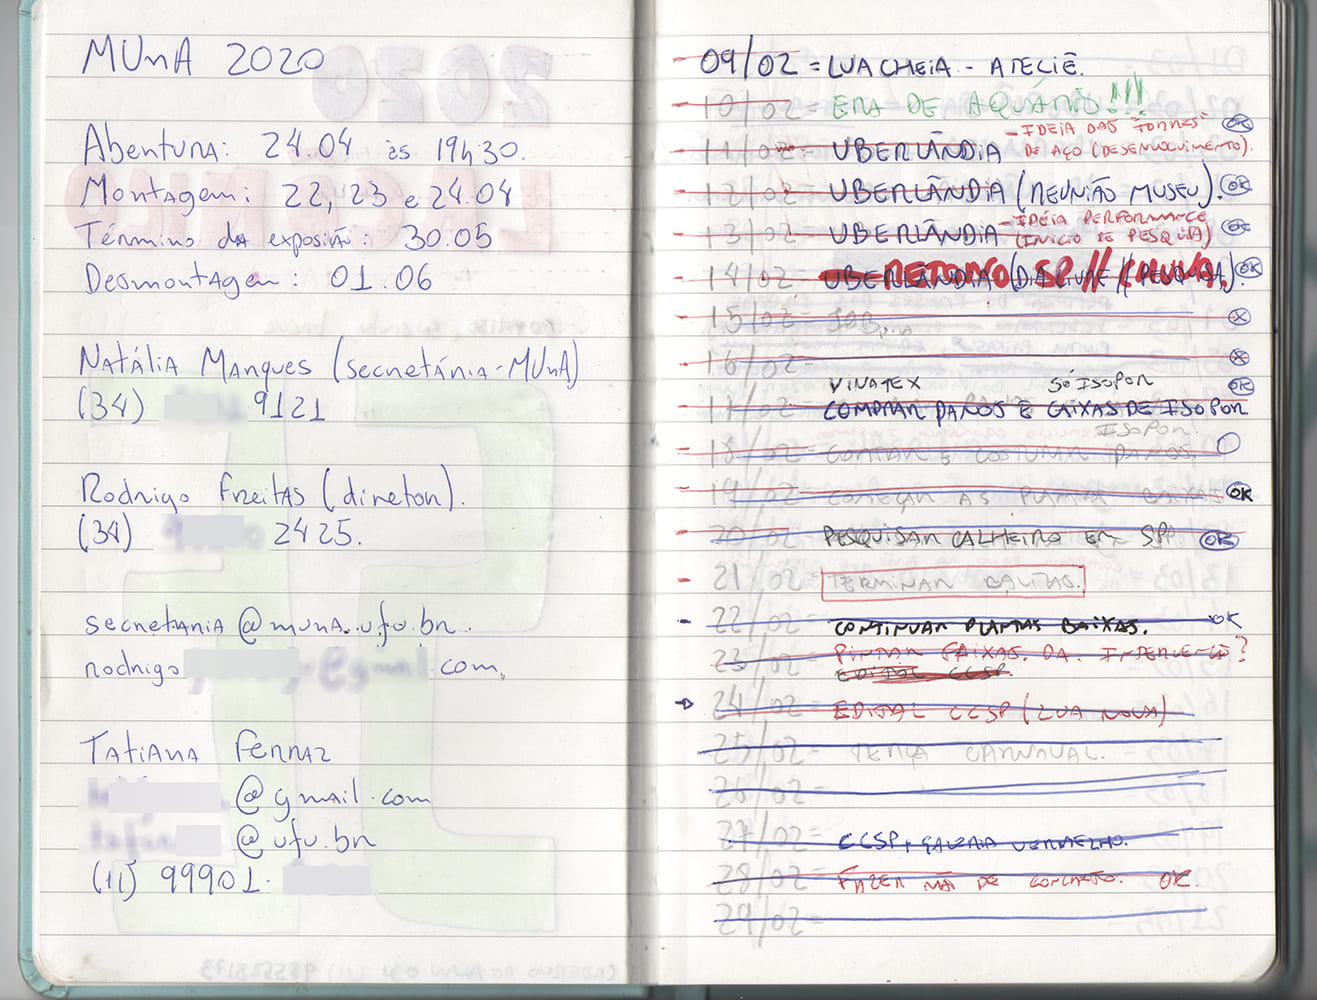 MUnA 2020
Abertura: 24.04 às 19h30.
Montagem: 22, 23 e 24.04
Término da exposição: 30.05
Desmontagem: 01.06
Natália Marques (secretária-MUnA)
(34) 9121
Rodrigo Freitas (diretor).
(34) 2425.
secretaria@muna.ufu.br
rodrigo .com,
Tatiana Ferraz
@gmail.com
@ufu.br
(11) 99901
09/02 = LUA CHEIA - ATELIÊ.
10/02 = ERA DE AQUÁRIO!!!
11/02 = UBERLÂNDIA - IDEIA DAS "TORRES" OK
DE AÇO (DESENVOLVIMENTO).
12/02 = UBERLÂNDIA (REUNIÃO MUSEU). OK
13/02 = UBERLÂNDIA - IDÉIA PERFORMANCE OK
(INÍCIO DE PESQUISA)
14/02 = UBERLÂNDIA RETORNO SP // CHUVA. OK
15/02 = JOB... X
16/02 = X
VINATEX SÓ ISOPOR OK
17/02 = COMPRAR PANOS E CAIXAS DE ISOPOR
ISOPOR.
18/02 = CORTAR E COSTURAR PANOS.
19/02 = COMEÇAR AS PLANTAS BAIXAS OK
20/02 = PESQUISAR CALHEIRO EM SP. OK
21/02 = TERMINAR
22/02 = CONTINUAR PLANTAS BAIXAS. OK
23/02 = PINTAR FAIXAS. DA. ?
EDITAL CCSP.
24/02 = EDITAL CCSP (LUA NOVA)
25/02 = TERÇA CARNAVAL.
26/02 =
27/02 = CCSP + GALERIA VERMELHO.
28/02 = FAZER MÃO DE CONCRETO. OK.
29/02 =